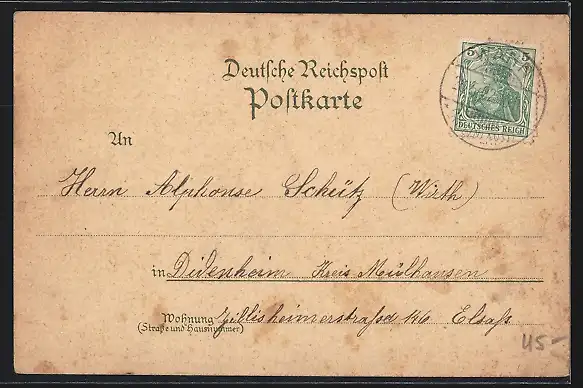 Deutsche Reichspost
Postkarte
5 5
DEUTSCHES REICH
An
Herrn Alphonse Schütz (Wirth)
in Didenheim Kreis Mülhausen
Wohnung Zillisheimerstraße 146 Elsaß
(Straße und Hausnummer)
45-